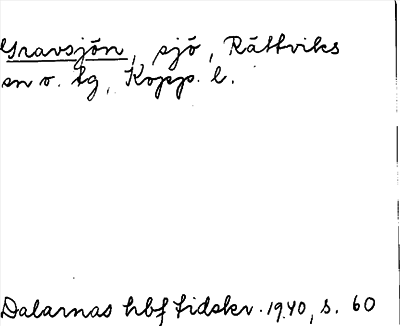 Gravsjön, sjö, Rättviks
sn o. tg, Kopp. l.
Dalarnas hbf tidskr. 1940, s. 60